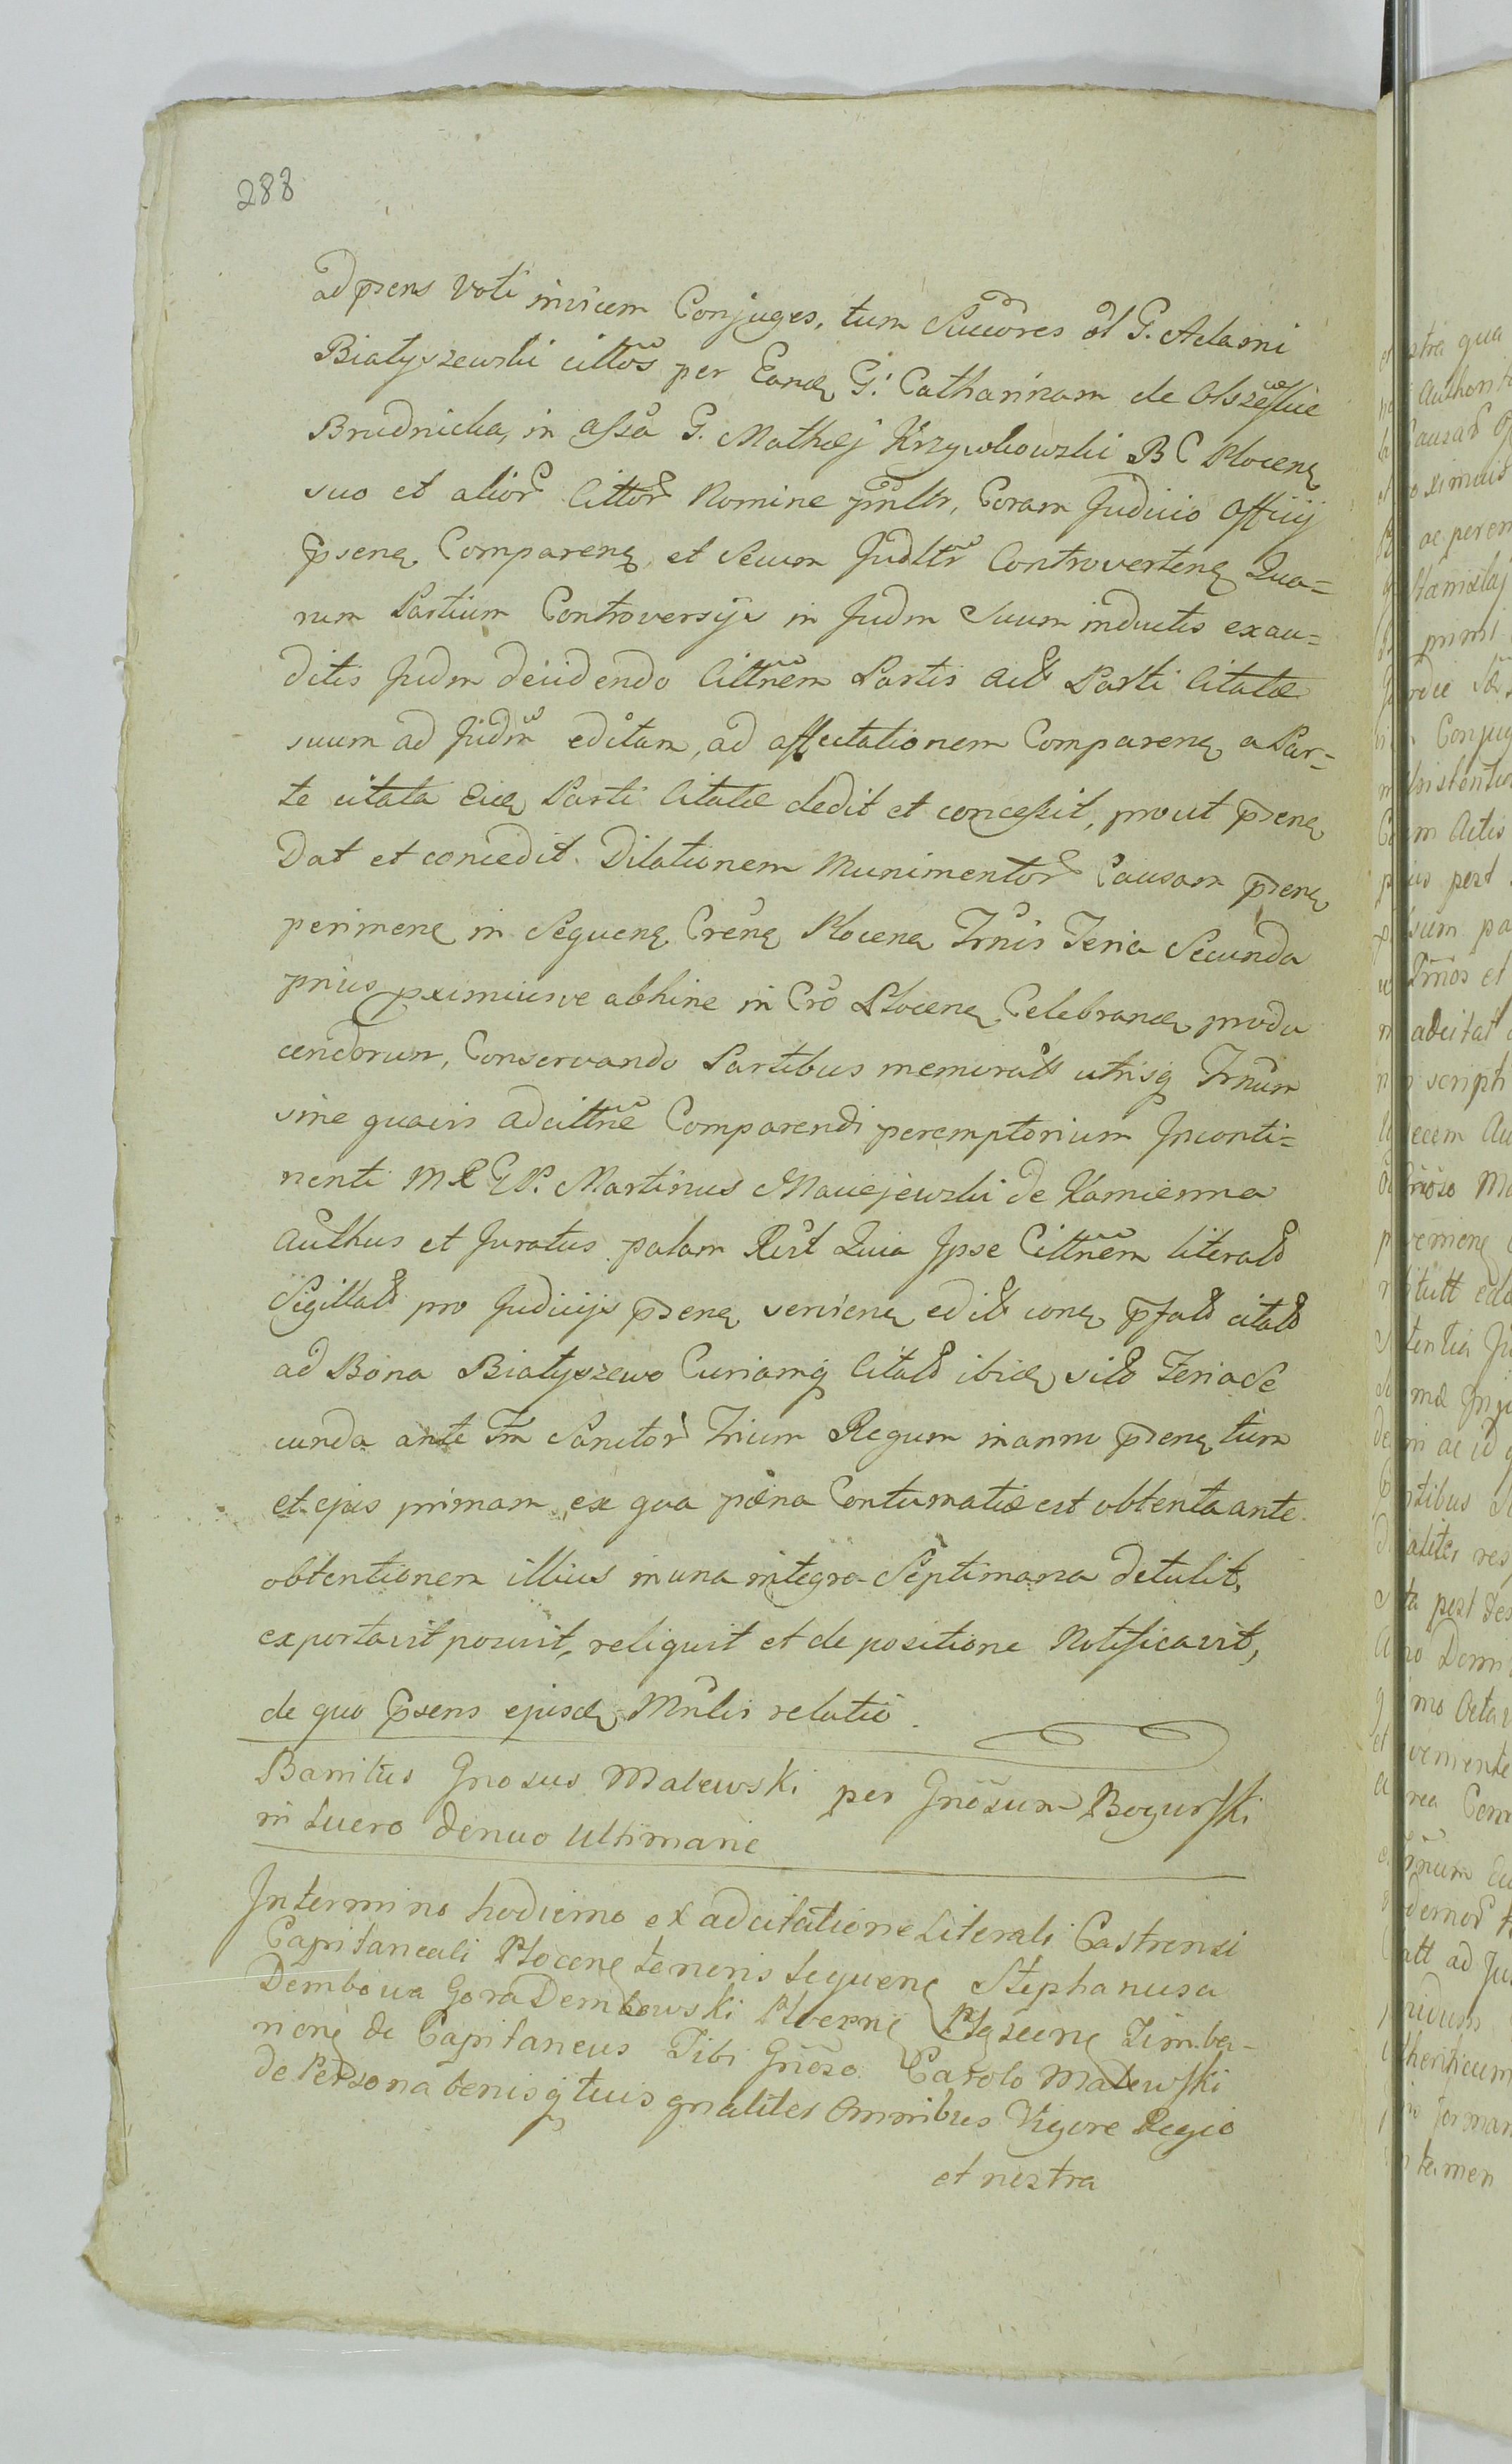 288
ad prens Voti invicem Conjuges, tum Succores ol G. Adami
Białyszewski cittos per Eand G. Catharinam de Olszewskie
Brudnicka, in assa G. Mathej Krzywkowski B C Plocen
suo et alior Cittor Nomine pmltr, Coram Judicio Officij
psen Comparen, et Secum Judltr Controverten Qua=
rum Partium Controversijs in Judm Suum inductis exau=
ditis Judm decidendo Cittnem Partis Act Parti Citatæ
suum ad Judm editam, ad affectationem Comparen a Par=
te citata Eid Parti Citatæ dedit et concessit, prout psen
Dat et concedit. Dilationem Munimentor Causam psen
perimen in Sequen Cren Plocen Trnis Feria Secunda
prius pximiusve abhinc in Cro Plocen Celebrand produ
cendorum, Conservando Partibus memorat utrisq Trnum
sine quavis adcittne Comparendi peremptorium Inconti=
nenti M et G P. Martinus Maciejewski de Kamienna
Authus et Juratus palam Rect Quia Ipse Cittnem literal
Sigillat pro Judicijs psen servien edit con pfat citat
ad Bona Białyszewo Curiamq Citat ibid sit Feria Se
cunda ante Fm Sanctor Trium Regum in anno psen tum
et ejus primam, ex qua pæna Contumatiæ est obtenta ante
obtentionem illius in una integra Septimana detulit,
exportavit posuit, reliquit et de positione Notificavit,
de quo Psens ejusd Mnlis relatio.
Banitus Gnosus Malewski per Gnosum Bogurski
in Lucro denuo Ultimarie
In termino hodierno ex adcitatione Literali Castrensi
Capitaneali Plocen tenoris Sequen Stephanus a
Dembowa Gora Dembowski Plocen
nien & Capitaneus Tibi Gnoso Carolo Malewski
de Persona bonisq tuis gnaliter Omnibus Vigore Regio
et nostra